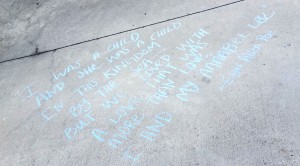 I WAS A CHILD
AND SHE WAS A CHILD
IN THIS KINGDOM
BY THE SEA
BUT WE LOVED WITH
A LOVE THAT WAS
MORE THAN LOVE
I AND MY ANNABELL LEE